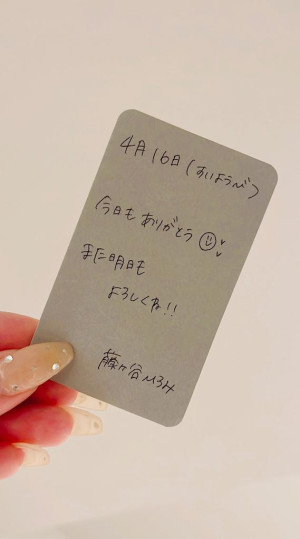 4月16日(すいようび)
今日も ありがとう
また明日も
よろしくね!!